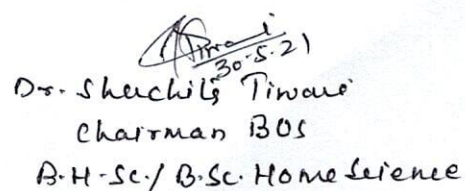 Tiwari
30.5.21
Dr. Shuchi Tiwari
Chairman BOS
B.H-Sc./ B.Sc. Home Science